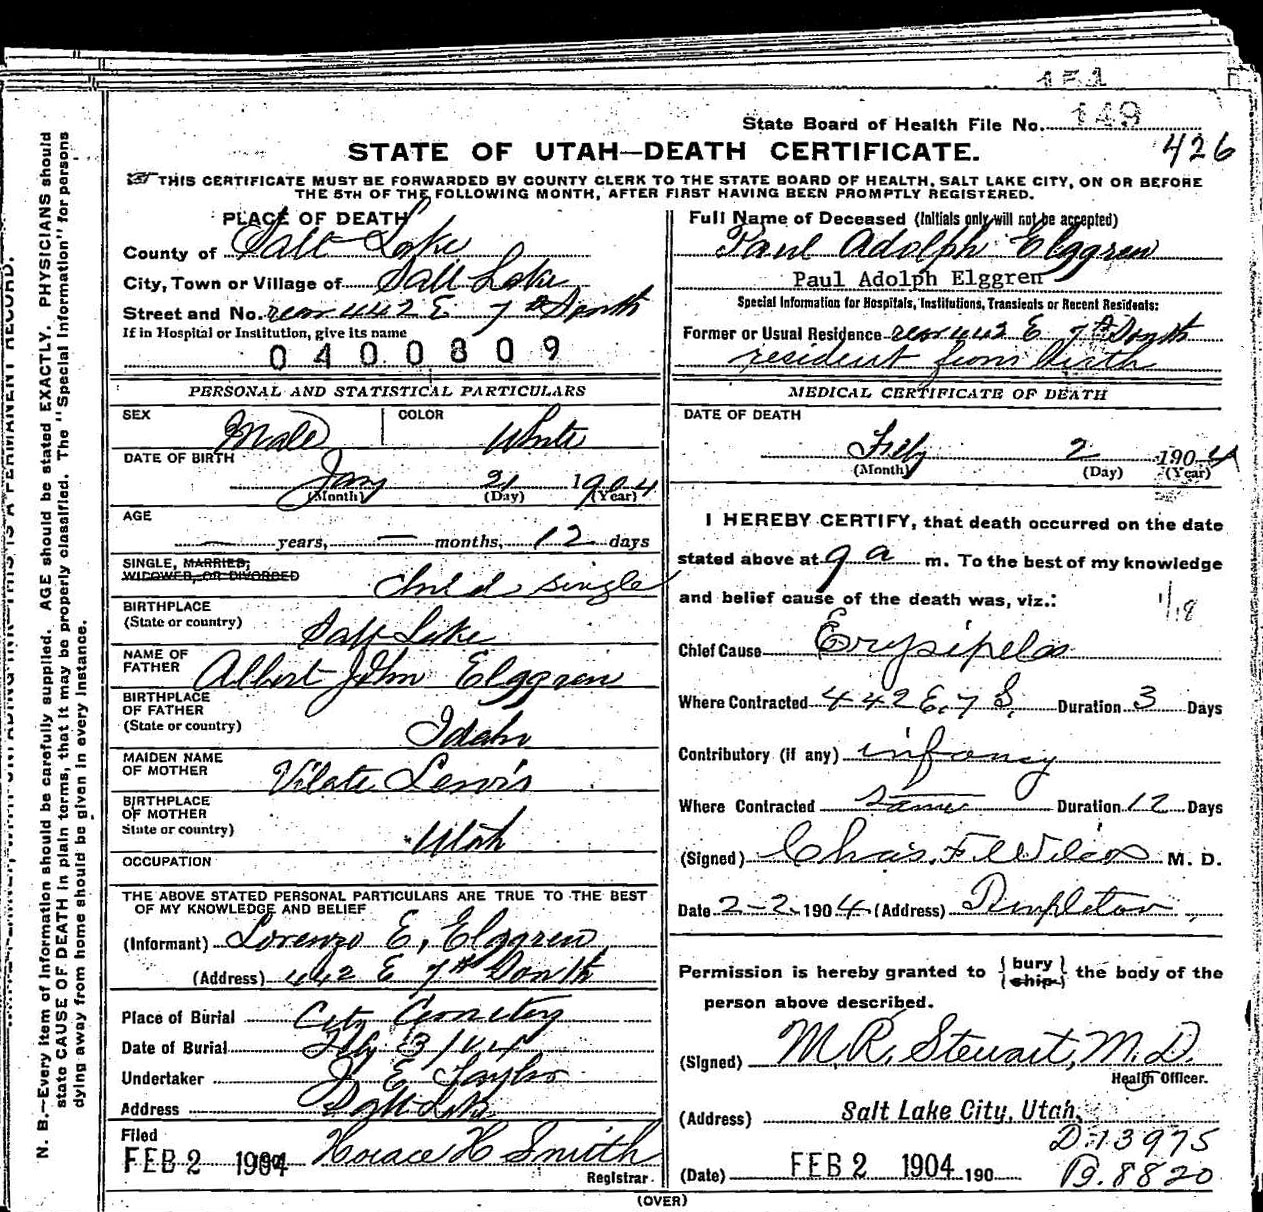 151
State Board of Health File No. 149
426
STATE OF UTAH—DEATH CERTIFICATE.
THIS CERTIFICATE MUST BE FORWARDED BY COUNTY CLERK TO THE STATE BOARD OF HEALTH, SALT LAKE CITY, ON OR BEFORE
THE 5TH OF THE FOLLOWING MONTH, AFTER FIRST HAVING BEEN PROMPTLY REGISTERED.
PLACE OF DEATH
County of Salt Lake
City, Town or Village of Salt Lake
Street and No. rear 442 E 7th South
If in Hospital or Institution, give its name
0400809
PERSONAL AND STATISTICAL PARTICULARS
SEX Male COLOR White
DATE OF BIRTH
Jany 21 1904
(Month) (Day) (Year)
AGE
— years, — months, 12 days
SINGLE, MARRIED,
WIDOWED, OR DIVORCED
Child single
BIRTHPLACE
(State or country) Salt Lake
NAME OF
FATHER Albert John Elggren
BIRTHPLACE
OF FATHER
(State or country) Idaho
MAIDEN NAME
OF MOTHER Vilate Lewis
BIRTHPLACE
OF MOTHER
State or country) Utah
OCCUPATION
THE ABOVE STATED PERSONAL PARTICULARS ARE TRUE TO THE BEST
OF MY KNOWLEDGE AND BELIEF
(Informant) Lorenzo E. Elggren
(Address) 442 E 7th South
Place of Burial City Cemetery
Date of Burial Feby 3/04
Undertaker J E Taylor
Address Salt Lake
Filed
FEB 2 1904 Horace H Smith
Registrar
Full Name of Deceased (Initials only will not be accepted)
Paul Adolph Elggren
Paul Adolph Elggren
Special Information for Hospitals, Institutions, Transients or Recent Residents:
Former or Usual Residence rear 442 E 7th South
resident from birth
MEDICAL CERTIFICATE OF DEATH
DATE OF DEATH
Feby 2 1904
(Month) (Day) (Year)
I HEREBY CERTIFY, that death occurred on the date
stated above at 9 a m. To the best of my knowledge
and belief cause of the death was, viz.:
1/18
Chief Cause Erysipelas
Where Contracted 442 E. 7 S. Duration 3 Days
Contributory (if any) infancy
Where Contracted same Duration 12 Days
(Signed) Chas. F. Wilcox M. D.
Date 2-2-1904 (Address) Templeton
Permission is hereby granted to { bury
ship } the body of the
person above described.
(Signed) M. R. Stewart, M.D.
Health Officer.
(Address) Salt Lake City, Utah.
D. 13975
(Date) FEB 2 1904 190
B. 8820
(OVER)
N. B.—Every item of information should be carefully supplied. AGE should be stated EXACTLY. PHYSICIANS should
state CAUSE OF DEATH in plain terms, that it may be properly classified. The "Special Information" for persons
dying away from home should be given in every instance.
THIS IS A PERMANENT RECORD.